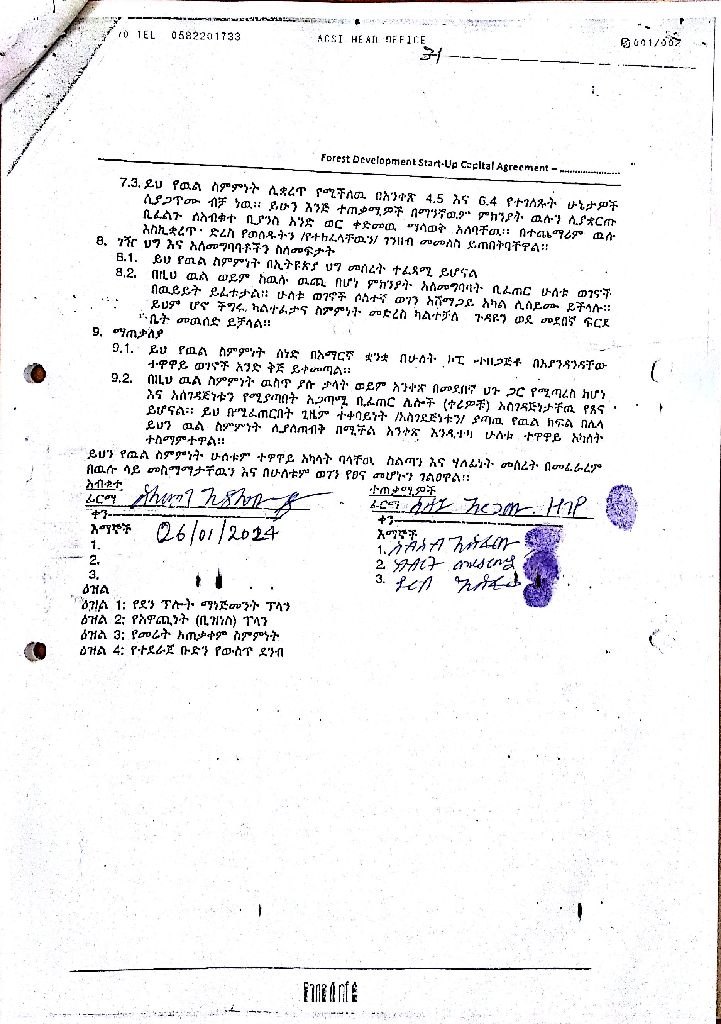 TEL 0582201733 ACSI HEAD OFFICE 001/002
31
Forest Development Start-Up Capital Agreement – ....................
7.3. ይህ የዉል ስምምነት ሊቋረጥ የሚችለዉ በአንቀጽ 4.5 እና 6.4 የተገለጹት ሁኔታዎች
ሲያጋጥሙ ብቻ ነዉ። ይሁን እንጅ ተጠቃሚዎች በማንኛዉም ምክንያት ዉሉን ሲያቋርጡ
ቢፈልጉ ለአብቁተ ቢያንስ አንድ ወር ቀድመዉ ማሳወቅ አለባቸዉ። በተጨማሪም ዉሉ
እስኪቋረጥ ድረስ የወሰዱትን /የተከፈላቸዉን/ ገንዘብ መመለስ ይጠበቅባቸዋል።
8. ገዥ ህግ እና አለመግባባቶችን ስለመፍታት
8.1. ይህ የዉል ስምምነት በኢትዮጵያ ህግ መሰረት ተፈጻሚ ይሆናል
8.2. በዚህ ዉል ወይም ከዉሉ ዉጪ በሆነ ምክንያት አለመግባባት ቢፈጠር ሁለቱ ወገኖች
በዉይይት ይፈቱታል። ሁለቱ ወገኖች ሶስተኛ ወገን አሸማጋይ አካል ሊሰይሙ ይችላሉ።
ይህም ሆኖ ችግሩ ካልተፈታና ስምምነት መድረስ ካልተቻለ ጉዳዩን ወደ መደበኛ ፍርድ
ቤት መዉሰድ ይቻላል።
9. ማጠቃለያ
9.1. ይህ የዉል ስምምነት ሰነድ በአማርኛ ቋንቋ በሁለት ኮፒ ተዘጋጅቶ በእያንዳንዳቸው
ተዋዋይ ወገኖች አንድ ቅጅ ይቀመጣል።
9.2. በዚህ ዉል ስምምነት ዉስጥ ያሉ ቃላት ወይም አንቀጽ በመደበኛ ህጉ ጋር የሚጣረስ ከሆነ
እና አስገዳጅነቱን የሚያጣበት አጋጣሚ ቢፈጠር ሌሎች (ቀሪዎች) አስገዳጅነታቸዉ የጸና
ይሆናል። ይህ በሚፈጠርበት ጊዜም ተቀባይነት /አስገደጅነቱን/ ያጣዉ የዉል ክፍል በሌላ
ይህን ዉል ስምምነት ሊያስጠብቅ በሚችል አንቀጽ እንዲተካ ሁለቱ ተዋዋይ አካላት
ተስማምተዋል።
ይህን የዉል ስምምነት ሁለቱም ተዋዋይ አካላት ባላቸዉ ስልጣን እና ሃለፊነት መሰረት በመፈራረም
በዉሉ ላይ መስማማታቸዉን እና በሁለቱም ወገን የፀና መሆኑን ገልፀዋል።
አብቁተ
ፊርማ
ቀን
26/01/2024
እማኞች
1.
2.
3.
ተጠቃሚዎች
ፊርማ
ቀን
እማኞች
1.
2.
3.
ዕዝል
ዕዝል 1: የደን ፕሎት ማኔጅመንት ፕላን
ዕዝል 2: የአዋጪነት (ቢዝነስ) ፕላን
ዕዝል 3: የመሬት አጠቃቀም ስምምነት
ዕዝል 4: የተደራጀ ቡድን የውስጥ ደንብ